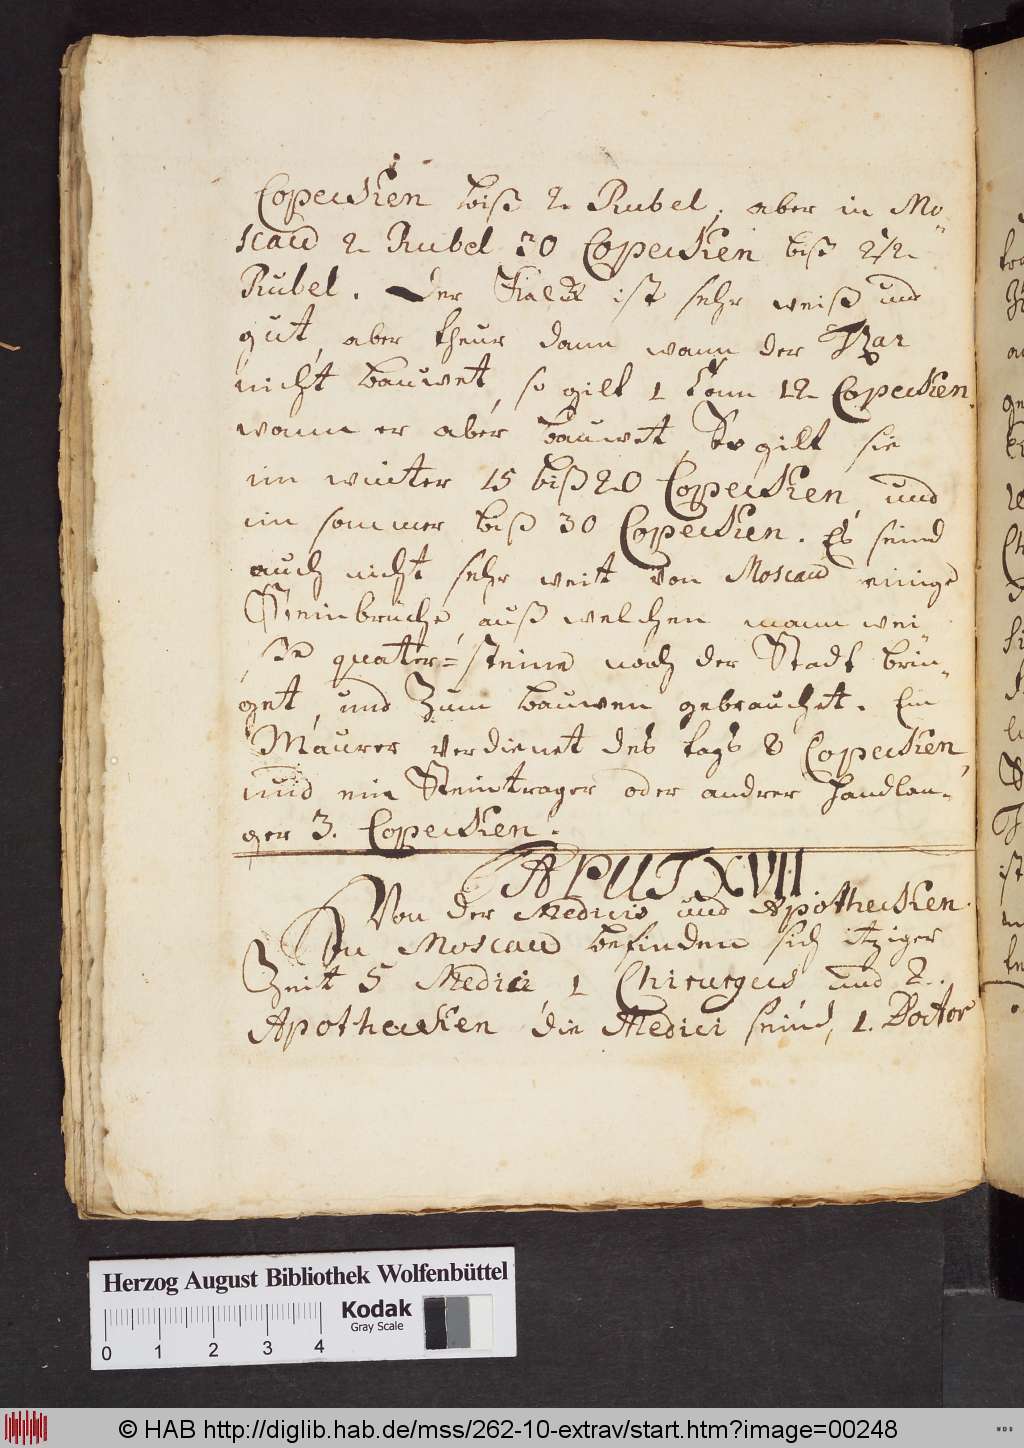 Copecken biß 2 Rubel, aber in Mo-
scau 2 Rubel 30 Copecken biß 2 1/2
Rubel. Der Kalck ist sehr weiß und
gut, aber theur dann wann der Tzar
nicht bauwet, so gilt 1 Tonn 12 Copecken,
wann er aber bauwet, So gilt sie
im winter 15 biß 20 Copecken, und
im sommer biß 30 Copecken. Es seind
auch nicht sehr weit von Moscau einige
Steinbrüche, auß welchen mann wei
ße quater=steine nach der Stadt brin-
get, und Zum bauwen gebrauchet. Ein
Maurer verdienet des tags 8 Copecken,
und ein Steintrager oder andrer handlan-
ger 3. Copecken.
CAPUT XVII
Von der Medicis und Apothecken.
In Moscau befinden sich itziger
Zeit 5 Medici 1 Chirurgus und 2.
Apothecken die Medici seind, 1. Doctor
Herzog August Bibliothek Wolfenbüttel
Kodak
Gray Scale
0 1 2 3 4
© HAB http://diglib.hab.de/mss/262-10-extrav/start.htm?image=00248